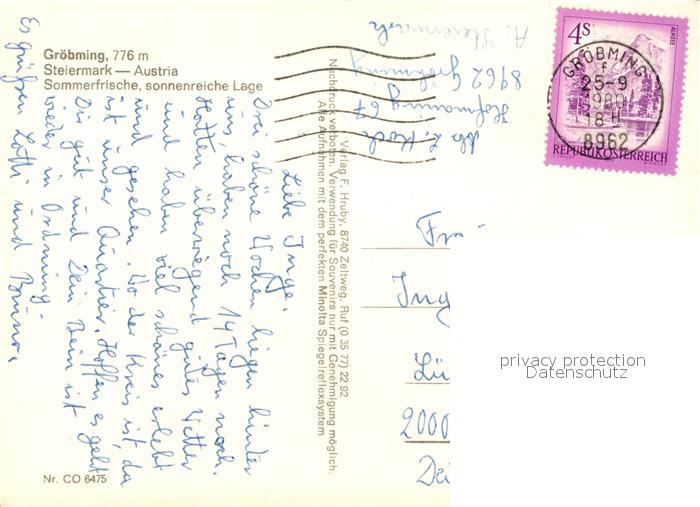 Gröbming, 776 m
Steiermark — Austria
Sommerfrische, sonnenreiche Lage
Liebe Inge.
Drei schöne Wochen liegen hinter
uns, haben noch 14 Tage noch.
Hatten überwiegend gutes Wetter
und haben viel schönes erlebt
und gesehen. Wo der Kreis ist, da
ist unser Quartier. Hoffen es geht
Dir gut und Dein Bein ist
wieder in Ordnung.
Es grüßen Lotti und Bruno.
Nr. CO 6475
Verlag F. Hruby, 8740 Zeltweg, Ruf (0 35 77) 22 92
Nachdruck verboten. Verwendung für Souvenirs nur mit Genehmigung möglich.
Alle Aufnahmen mit dem perfekten Minolta Spiegelreflexsystem
Abs. L. Koch
Hofmanning 67
8962 Gröbming
A. Steiermark
4S
ALMSEE
REPUBLIK ÖSTERREICH
GRÖBMING
25-9
1980
18
8962
Fr
Ing
Lü
2000
Dei
privacy protection
Datenschutz